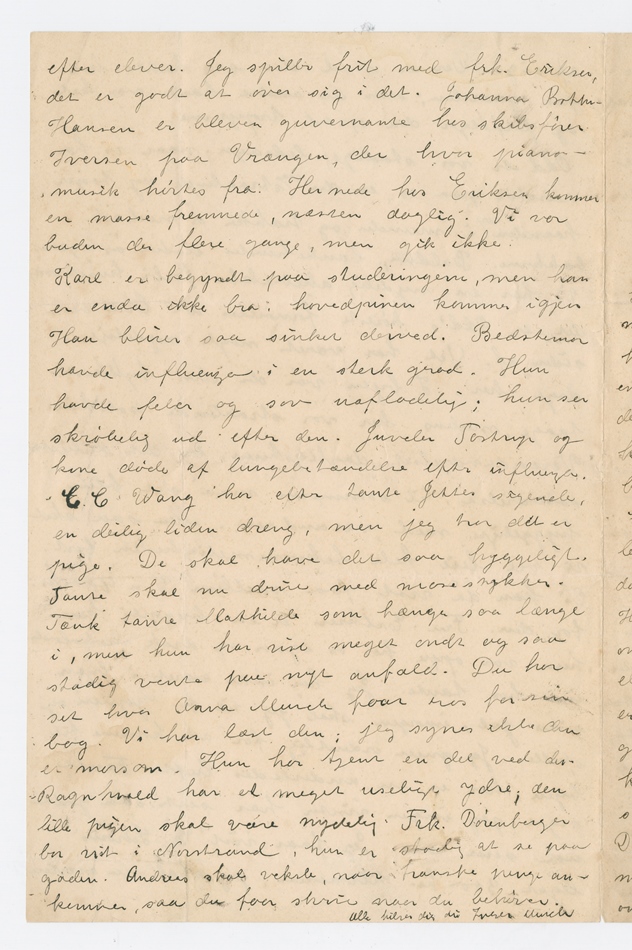 efter elever. Jeg spiller frit med frk. Eriksen,
det er godt at øver sig i det. Johanna
Hansen er bleven guvernante hos skibsfører
Iversen paa Vrængen, der hvor piano-
musik hørtes fra. Her nede hos Eriksen kommer
en masse fremmede, næsten daglig. Vi var
buden der flere gange, men gik ikke.
Karl er begyndt paa studeringerne, men han
er enda ikke bra: hovedpinen kommer igjen
Han bliver saa sinket derved. Bedstemor
havde influenza i en sterk grad. Hun
havde feber og sov uafladelig; hun ser
skrøbelig ud efter den. Juveler Tostrup og
kone døde af lungebetændelse efter influenza.
C. C. Wang har efter tante Jettes sigende,
en deilig liden dreng, men jeg tror det er
pige. De skal have det saa hyggeligt.
Tante skal nu drive med mosestykker.
Tænk tante Mathilde som hænge saa længe
i, men hun har vist meget ondt og saa
stadig vente paa nyt anfald. Du har
set hvor Anna Munch faar ros for sin
bog. Vi har læst den; jeg synes ikke den
er morsom. Hun har tjent en del ved den
Ragnhvald har et meget useligt ydre; den
lille pigen skal være nydelig. Frk. Dörenberger
bor vist i Norstrand, hun er stadig at se paa
gaden. Andreas skal veksle, naar franske penge an-
kommer, saa du faar, skriv naar du behøver.
Alle hilser dig din Inger Munch